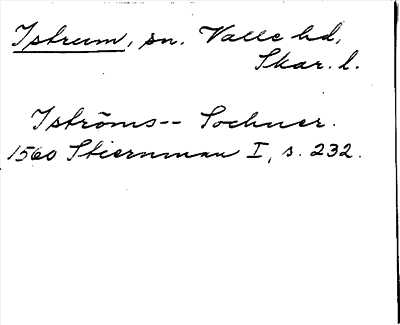 Istrum, sn. Valle hd,
Skar. l.
Iströms-- Sochner.
1560 Stiernman I, s. 232.